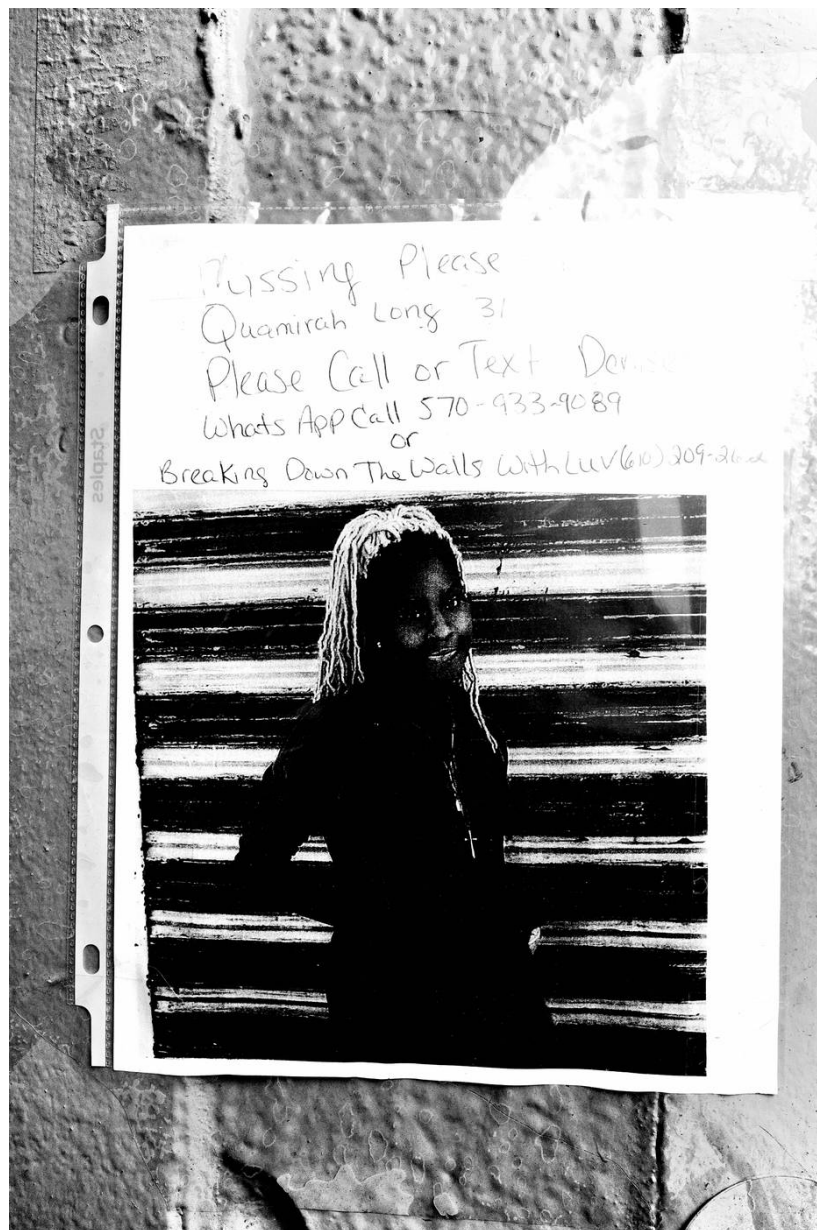 Missing Please
Quamirah Long 31
Please Call or Text
Whats App Call 570-933-9089
or
Breaking Down The Walls With LUV (610) 209-
Staples